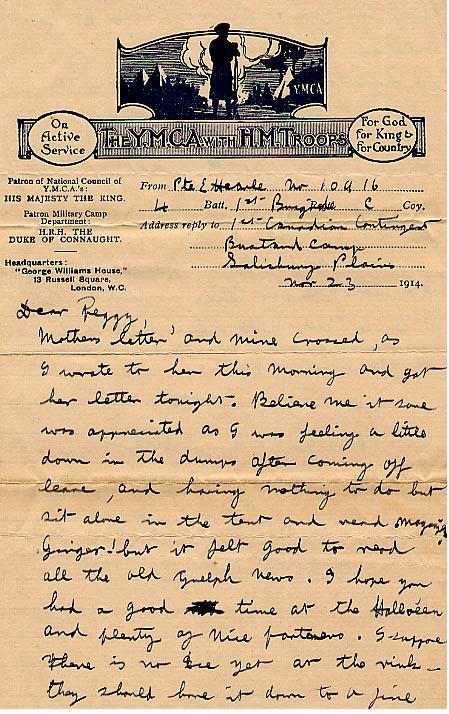 YMCA
On Active Service
THE Y.M.C.A. WITH H.M. TROOPS
For God for King & for Country
Patron of National Council of
Y.M.C.A.'s:
HIS MAJESTY THE KING.
Patron Military Camp
Department:
H.R.H. THE
DUKE OF CONNAUGHT.
Headquarters:
"George Williams House,"
13 Russell Square,
London, W.C.
From Pte E No 10916
4 Batt. 1st Brigade C Coy.
Address reply to 1st Canadian Contingent
Bustard Camp
Salisbury Plains
Nov 23 1914.
Dear Peggy,
Mothers letter and mine crossed, as
I wrote to her this morning and got
her letter tonight. Believe me it sure
was appreciated as I was feeling a little
down in the dumps after coming off
leave, and having nothing to do but
sit alone in the tent and read
Ginger! but it felt good to read
all the old Guelph news. I hope you
had a good time at the Halloeen
and plenty of nice partners. I suppose
there is no Ice yet at the rink –
they should have it down to a fine